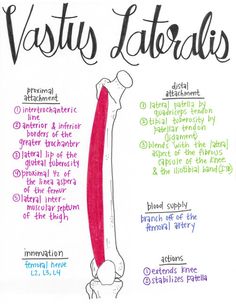 Vastus Lateralis
proximal
attachment
① intertrochanteric
line
② anterior & inferior
borders of the
greater trochanter
③ lateral lip of the
gluteal tuberosity
④ proximal ½ of
the linea aspera
of the femur
⑤ lateral inter-
muscular septum
of the thigh
innervation
femoral nerve
L2, L3, L4
distal
attachment
① lateral patella by
quadriceps tendon
② tibial tuberosity by
patellar tendon
(ligament)
③ blends with the lateral
aspect of the fibrous
capsule of the knee
& the iliotibial band (ITB)
blood supply
branch off of the
femoral artery
actions
① extends knee
② stabilizes patella